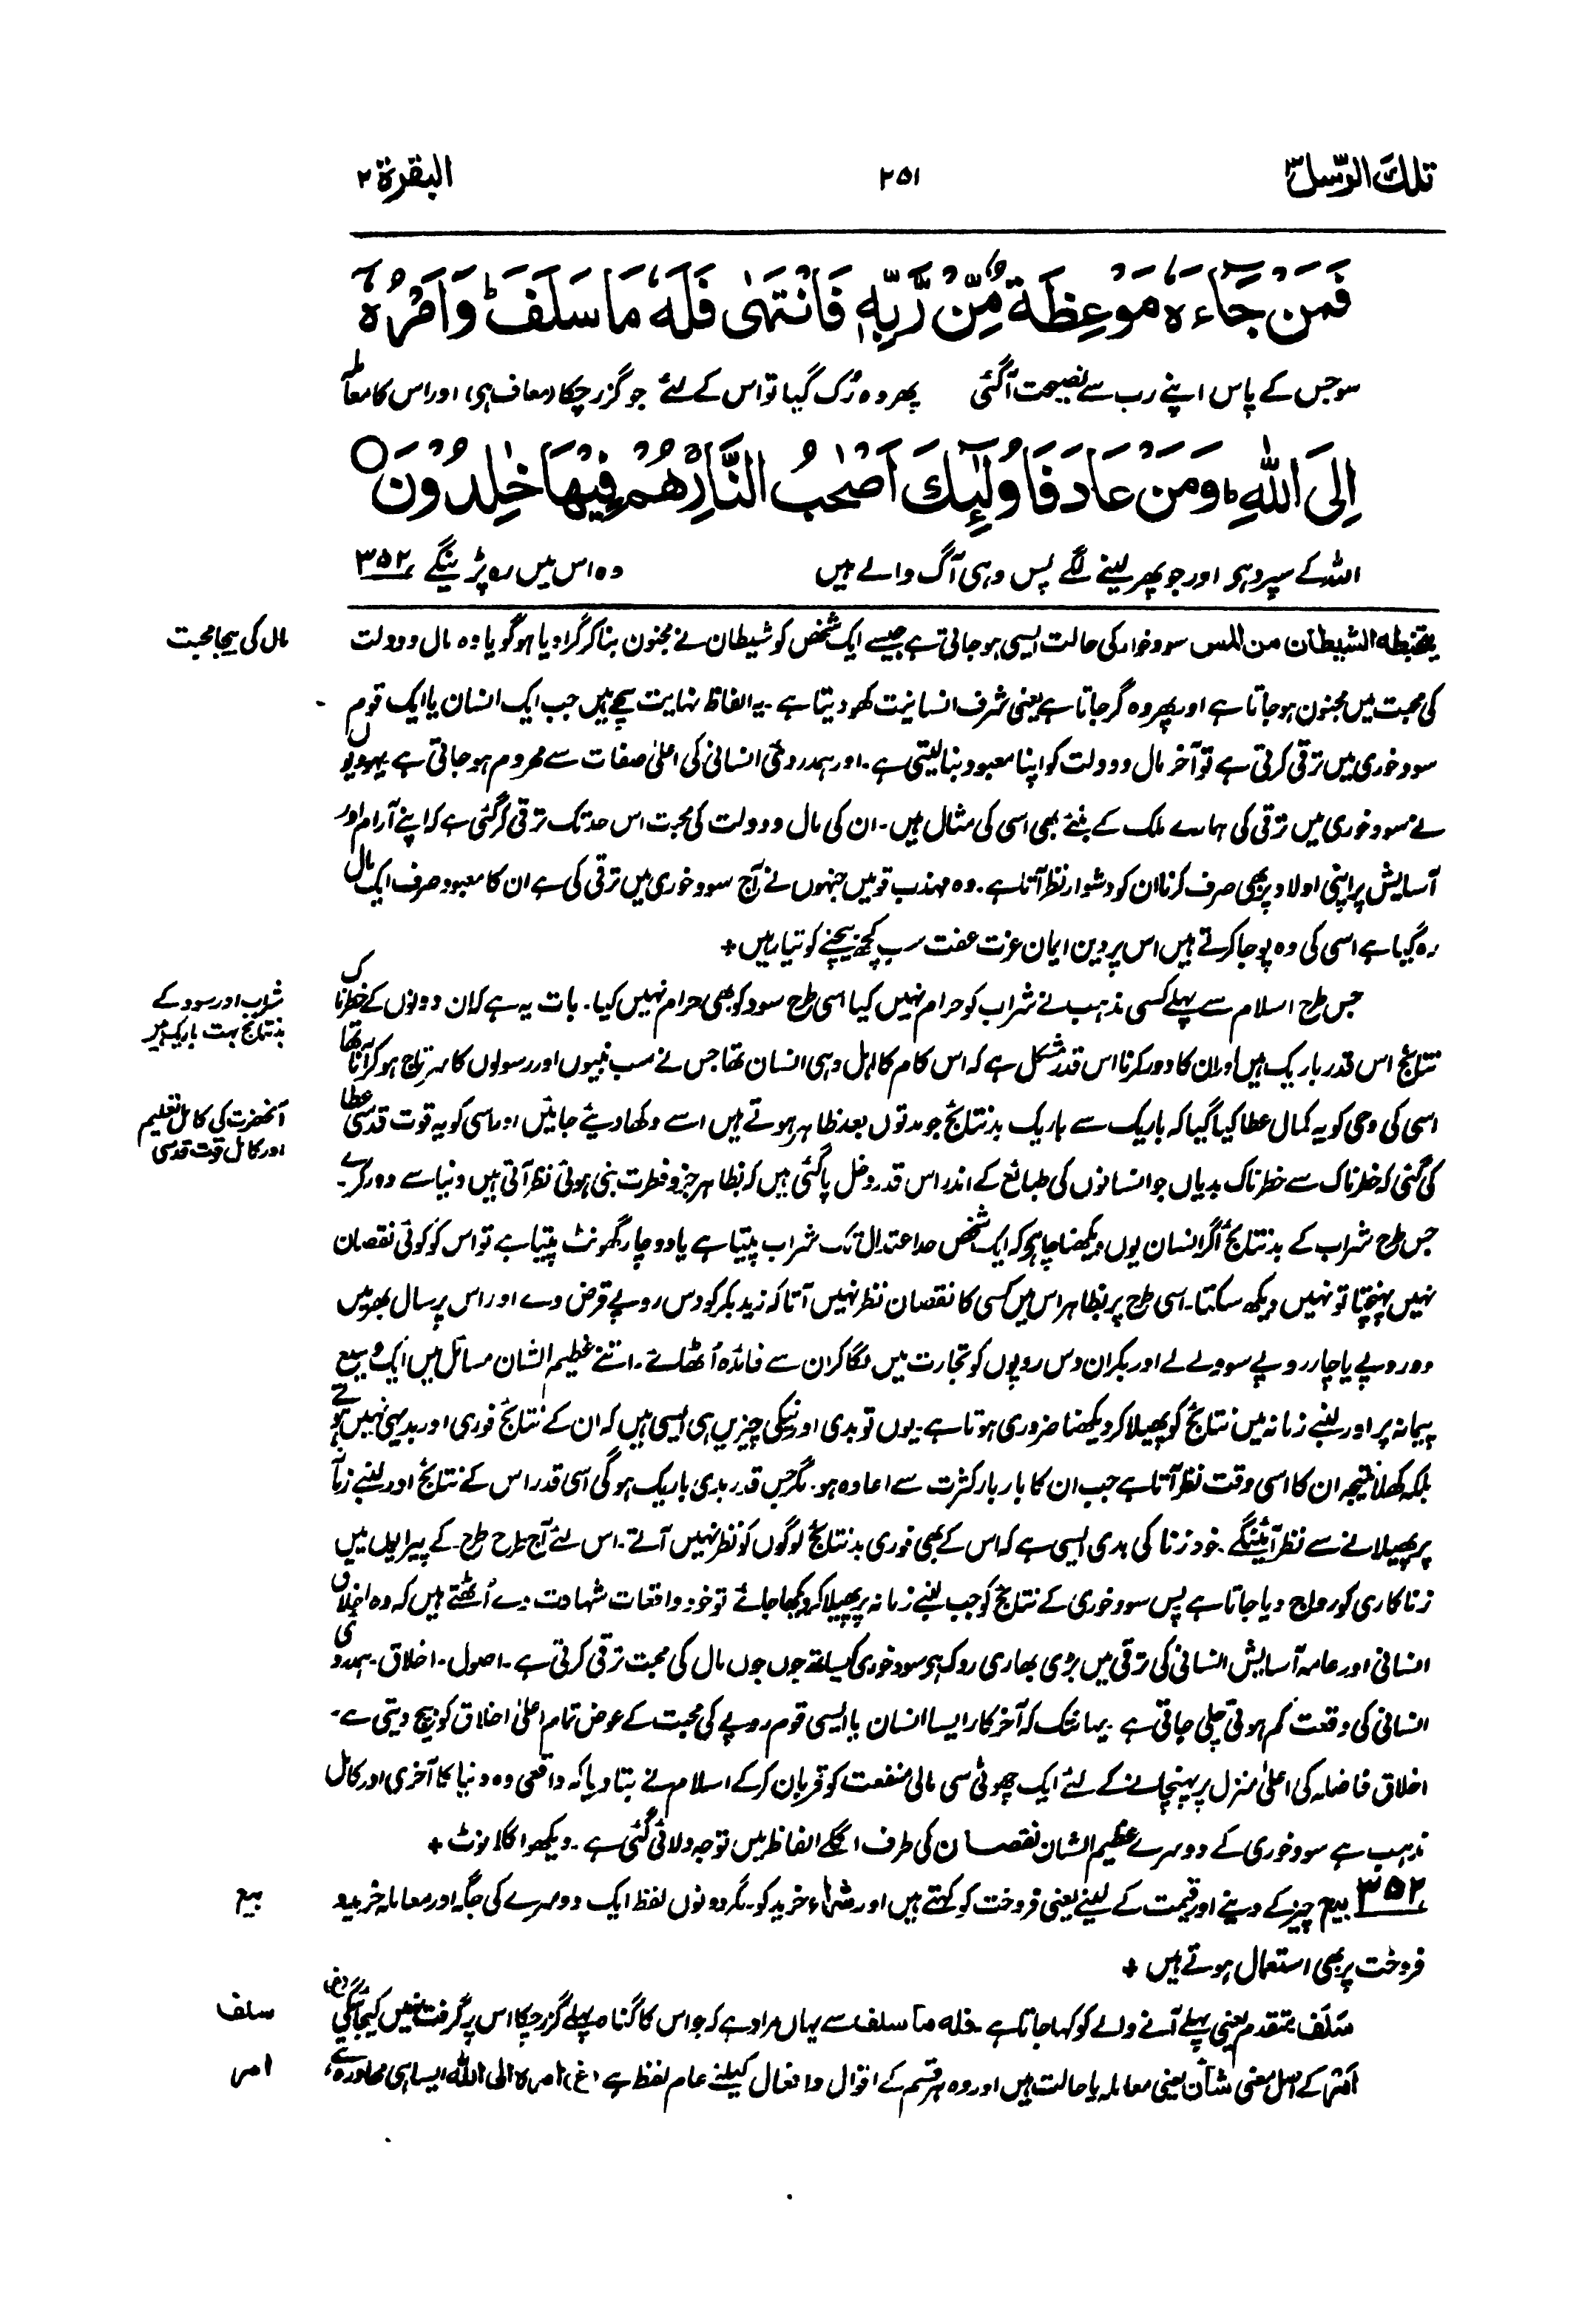 تلك الرسل ۳
۲۵۱
البقرة ۲
فَمَنْ جَآءَهٗ مَوْعِظَةٌ مِّنْ رَّبِّهٖ فَانْتَهٰى فَلَهٗ مَا سَلَفَ ؕ وَاَمْرُهٗۤ
سو جس کے پاس اپنے رب سے نصیحت آگئی پھر وہ رُک گیا تو اس کے لئے جو گزر چکا (معاف ہی) اور اس کا معاملہ
اِلَى اللّٰهِ ؕ وَمَنْ عَادَ فَاُولٰٓئِكَ اَصْحٰبُ النَّارِ هُمْ فِيْهَا خٰلِدُوْنَ ○
اللہ کے سپرد ہی اور جو پھر لینے لگے پس وہی آگ والے ہیں وہ اس میں رہ پڑینگے ۳۵۲
یتخبطه الشیطان من المس سود خوار کی حالت ایسی ہو جاتی ہے جیسے ایک شخص کو شیطان نے مجنون بنا کر گرا دیا ہو گویا وہ مال و دولت
مال کی بیجا محبت
کی محبت میں مجنون ہو جاتا ہے اور پھر وہ گر جاتا ہے یعنی شرف انسانیت کھو دیتا ہے ۔ یہ الفاظ نہایت سچے ہیں جب ایک انسان یا ایک قوم
سود خوری میں ترقی کرتی ہے تو آخر مال و دولت کو اپنا معبود بنا لیتی ہے ۔ اور ہمدردئی انسانی کی اعلیٰ صفات سے محروم ہو جاتی ہے یہودیوں
نے سود خوری میں ترقی کی ہمارے ملک کے بنئے بھی اسی کی مثال ہیں ۔ ان کی مال و دولت کی محبت اس حد تک ترقی کر گئی ہے کہ اپنے آرام اور
آسایش پر اپنی اولاد پر بھی صرف کرنا ان کو دشوار نظر آتا ہے ۔ وہ مہذب قومیں جنہوں نے آج سود خوری میں ترقی کی ہے ان کا معبود صرف ایک مال
رہ گیا ہے اسی کی وہ پوجا کرتے ہیں اس پر دین ایمان عزت عفت سب کچھ بیچنے کو تیار ہیں +
جس طرح اسلام سے پہلے کسی مذہب نے شراب کو حرام نہیں کیا اسی طرح سود کو بھی حرام نہیں کیا ۔ بات یہ ہے کہ ان دونوں کے خطرناک
شراب اور سود کے
بدنتائج بہت باریک ہیں
نتائج اس قدر باریک ہیں اور ان کا دور کرنا اس قدر مشکل ہے کہ اس کام کا اہل وہی انسان تھا جس نے سب نبیوں اور رسولوں کا سرتاج ہو کر آنا تھا
اسی کی وحی کو یہ کمال عطا کیا گیا کہ باریک سے باریک بدنتائج جو مدتوں بعد ظاہر ہوتے ہیں اسے دکھا دیئے جائیں اور اسی کو یہ قوت قدسی عطا
آنحضرت کی کامل تعلیم
اور کامل قوت قدسی
کی گئی کہ خطرناک سے خطرناک بدیاں جو انسانوں کی طبائع کے اندر اس قدر دخل پا گئی ہیں کہ بظاہر جزو فطرت بنی ہوئی نظر آتی ہیں دنیا سے دور کرے ۔
جس طرح شراب کے بدنتائج اگر انسان یوں دیکھنا چاہے کہ ایک شخص حد اعتدال تک شراب پیتا ہے یا دو چار گھونٹ پیتا ہے تو اس کو کوئی نقصان
نہیں پہنچتا تو نہیں دیکھ سکتا ۔ اسی طرح پر بظاہر اس میں کسی کا نقصان نظر نہیں آتا کہ زید بکر کو دس روپے قرض دے اور اس پر سال بھر میں
دو روپے یا چار روپے سود لے لے اور بکر ان دس روپوں کو تجارت میں لگا کر ان سے فائدہ اُٹھائے ۔ اتنے عظیم الشان مسائل میں ایک وسیع
پیمانہ پر اور لمبے زمانہ میں نتائج کو پھیلا کر دیکھنا ضروری ہوتا ہے ۔ یوں تو بدی اور نیکی چیزیں ہی ایسی ہیں کہ ان کے نتائج فوری اور بدیہی نہیں ہوتے
بلکہ کھلا نتیجہ ان کا اسی وقت نظر آتا ہے جب ان کا بار بار کثرت سے اعادہ ہو ۔ مگر جس قدر بدی باریک ہوگی اسی قدر اس کے نتائج اور لمبے زمانہ
پر پھیلانے سے نظر آئینگے ۔ خود زنا کی بدی ایسی ہے کہ اس کے بھی فوری بدنتائج لوگوں کو نظر نہیں آتے ۔ اس لئے آج طرح طرح کے پیرایوں میں
زنا کاری کو رواج دیا جاتا ہے پس سود خوری کے نتائج کو جب لمبے زمانہ پر پھیلا کر دیکھا جائے تو خود واقعات شہادت دے اُٹھتے ہیں کہ وہ اخلاق
انسانی اور عامہ آسایش انسانی کی ترقی میں بڑی بھاری روک ہے سود خوری کیساتھ جوں جوں مال کی محبت ترقی کرتی ہے ۔ اصول ۔ اخلاق ۔ ہمدردی
انسانی کی وقعت کم ہوتی چلی جاتی ہے ۔ یہانتک کہ آخر کار ایسا انسان یا ایسی قوم روپے کی محبت کے عوض تمام اعلیٰ اخلاق کو بیچ دیتی ہے ۔
اخلاق فاضلہ کی اعلیٰ منزل پر پہنچانے کے لئے ایک چھوٹی سی مالی منفعت کو قربان کر کے اسلام نے بتا دیا کہ واقعی وہ دنیا کا آخری اور کامل
مذہب ہے سود خوری کے دوسرے عظیم الشان نقصان کی طرف اگلے الفاظ میں توجہ دلائی گئی ہے ۔ دیکھو اگلا نوٹ +
۳۵۲ بیع چیز کے دینے اور قیمت کے لینے یعنی فروخت کو کہتے ہیں اور شراء خرید کو ۔ مگر دونوں لفظ ایک دوسرے کی جگہ اور معاملہ خرید و
بیع
فروخت پر بھی استعمال ہوتے ہیں +
سَلَف متقدم یعنی پہلے آنے والے کو کہا جاتا ہے ۔ فله ما سلف سے یہاں مراد ہے کہ جو اس کا گناہ پہلے گزر چکا اس پر گرفت نہیں کیجائیگی (غ)
سلف
اَمْر کے اصل معنی شأن یعنی معاملہ یا حالت ہیں اور وہ ہر قسم کے اقوال و افعال کیلئے عام لفظ ہے (غ) امره الى الله ایسا ہی محاورہ ہے
امر